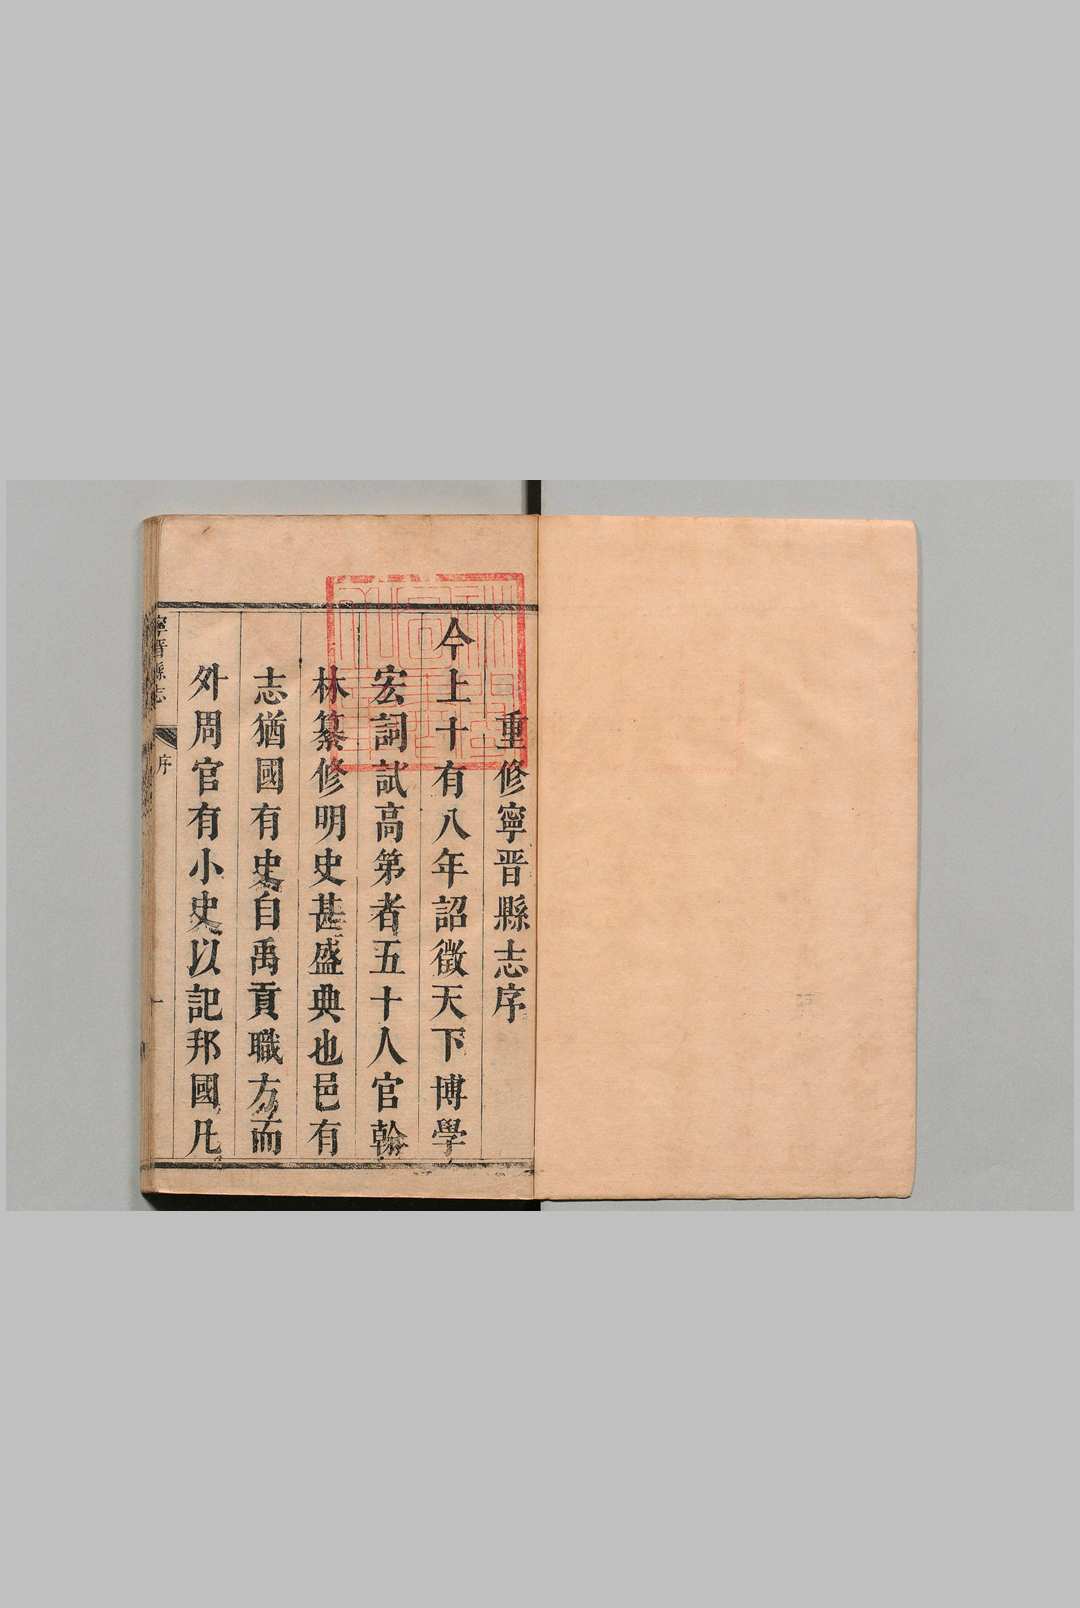 重修寧晉縣志序
今上十有八年詔徵天下博學
宏詞試高第者五十人官翰
林纂修明史甚盛典也邑有
志猶國有史自禹貢職方而
外周官有小史以記邦國凡
寧晉縣志
序
一